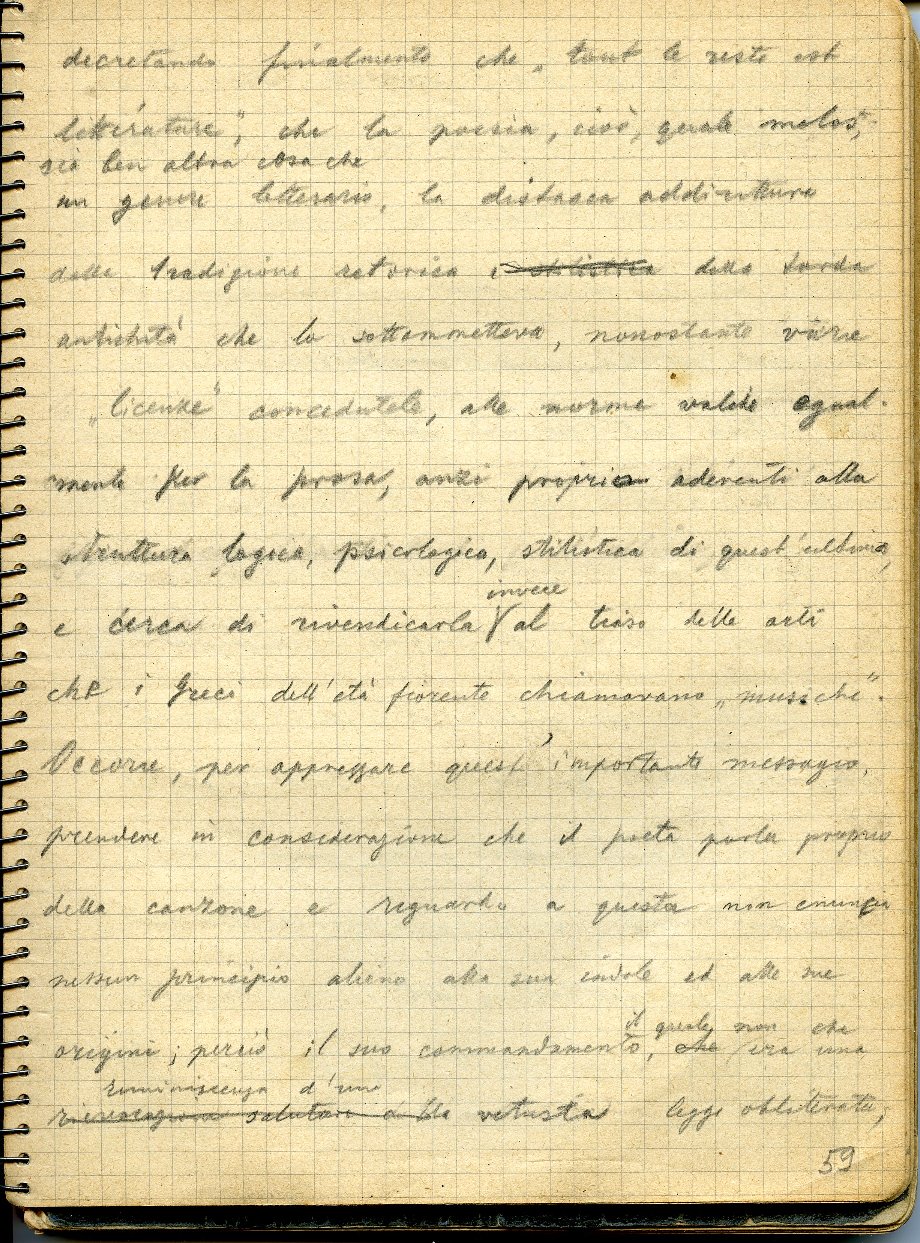 decretando finalmente che „tout le reste est
littérature", che la poesia, cioè, quale melos,
sia ben altra cosa che
un genere letterario, la distacca addirittura
dalla tradizione retorica e stilistica della tarda
antichità che la sottommetteva, nonostante varie
„licenze" concedutele, alle norme valide egual-
mente per la prosa, anzi proprio aderenti alla
struttura logica, psicologica, stilistica di quest'ultima,
e cerca di rivendicarla al tiaso delle arti
invece
che i Greci dell'età fiorente chiamavano „musiche".
Occorre, per apprezzare quest'importante messagio,
prendere in considerazione che il poeta parla proprio
della canzone e riguardo a questa non enuncia
nessun principio alieno alla sua indole ed alle sue
il quale non che
origini; perciò il suo commandamento, che era una
reminiscenza d'una
salutare vetusta legge obliterata,
59